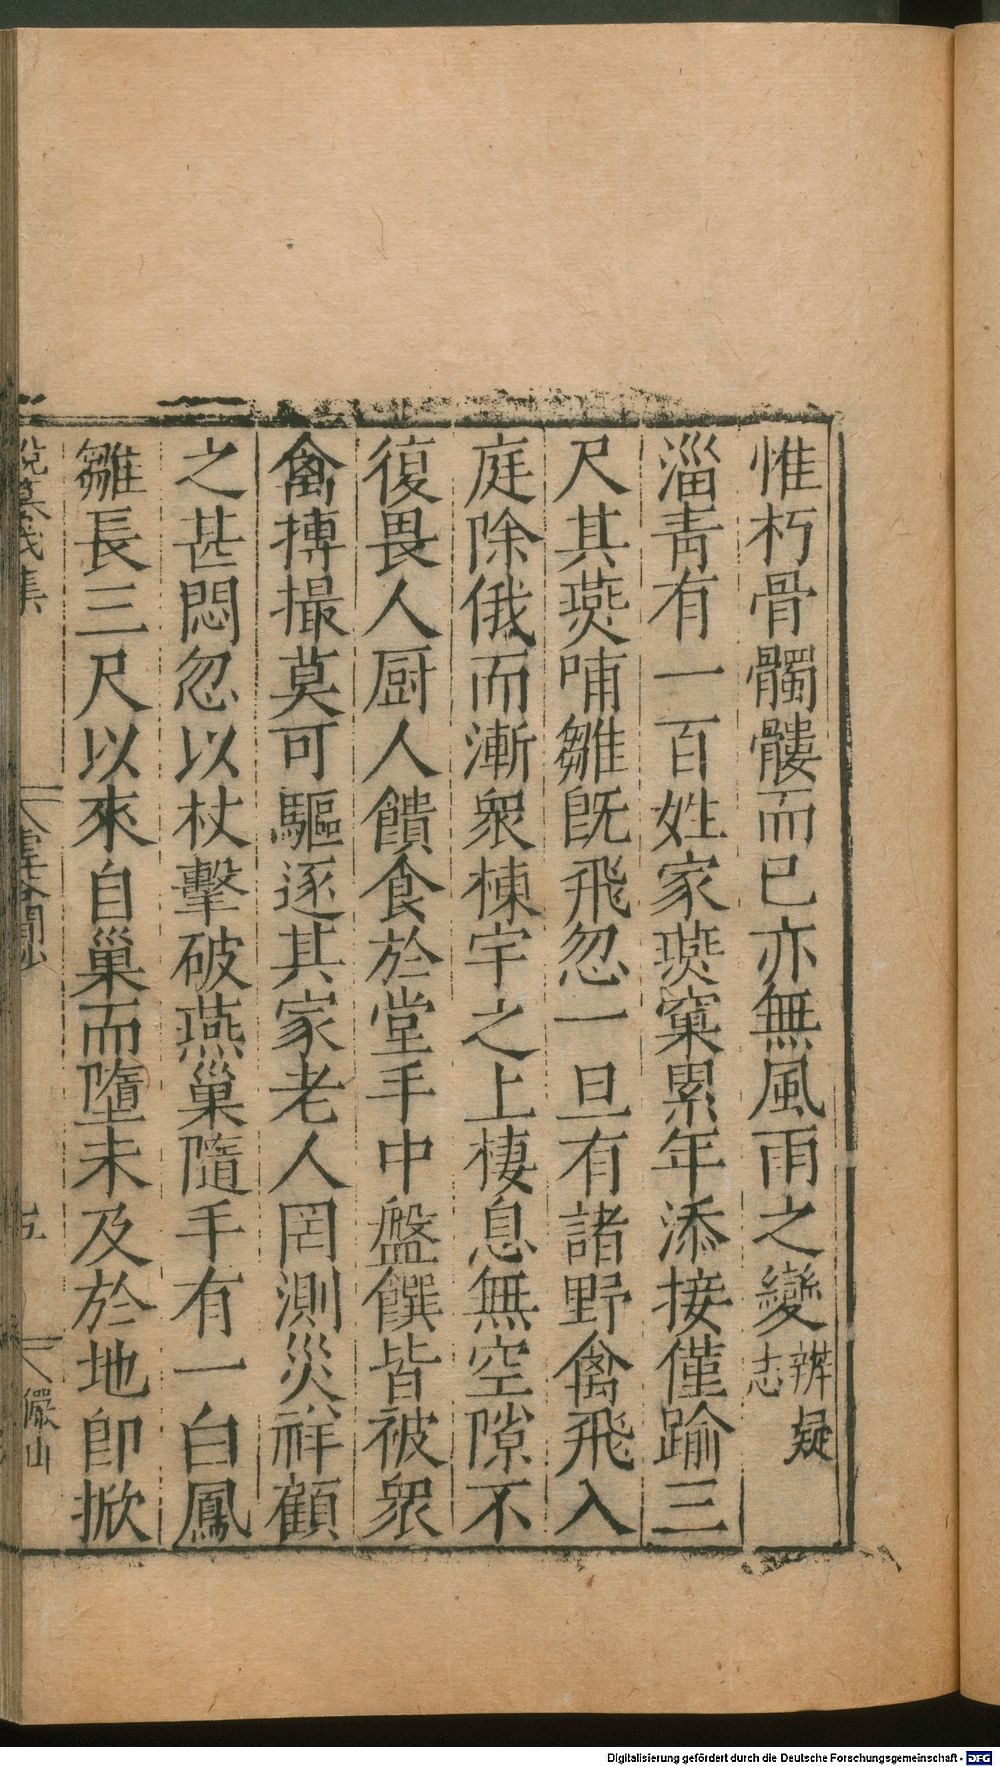 惟朽骨髑髏而已亦無風雨之變辨疑志
淄青有一百姓家燕窠累年添接僅踰三
尺其燕哺雛既飛忽一旦有諸野禽飛入
庭除俄而漸衆棟宇之上棲息無空隙不
復畏人厨人饋食於堂手中盤饌皆被衆
禽搏撮莫可驅逐其家老人罔測災祥顧
之甚悶忽以杖擊破燕巢隨手有一白鳳
雛長三尺以來自巢而墮未及於地即掀
集
五
儼山
Digitalisierung gefördert durch die Deutsche Forschungsgemeinschaft - DFG